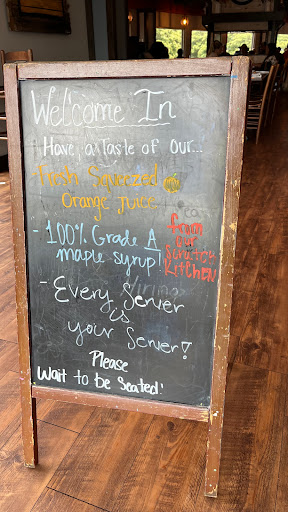 Welcome In
Have a Taste of Our...
- Fresh Squeezed
Orange Juice
- 100% Grade A
maple syrup!
from
our
Scratch
Kitchen
- Every Server
is
your Server!
Please
Wait to be Seated!